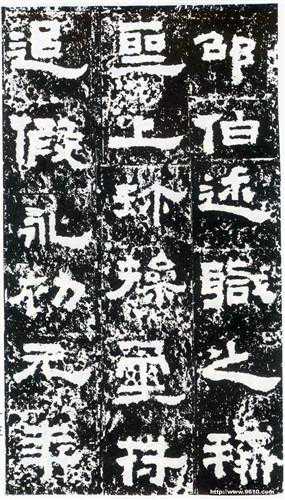 邵伯述職之稱
聖上珍操璽符
追假永初元年
http://www.9610.com